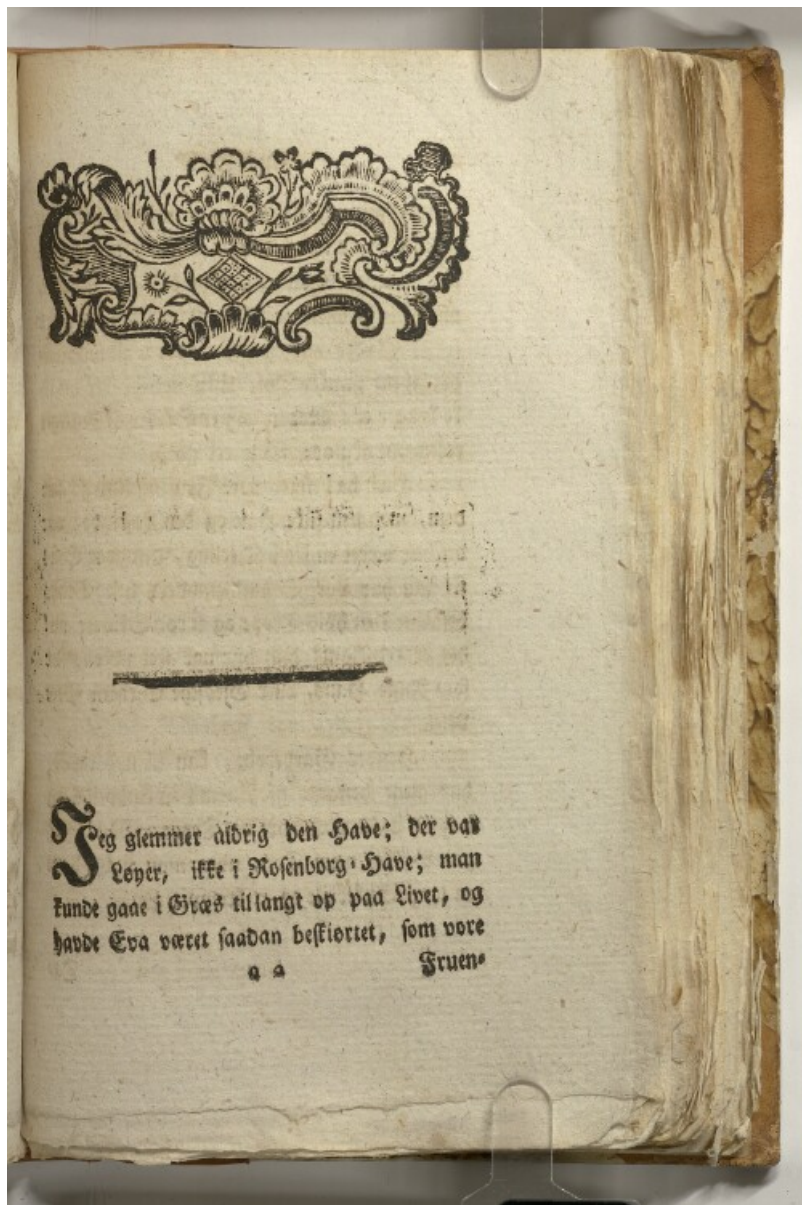 Jeg glemmer aldrig den Have; der var
Løyer, ikke i Rosenborg-Have; man
kunde gaae i Græs til langt op paa Livet, og
havde Eva været saadan beskiørtet, som vore
a a Fruen-